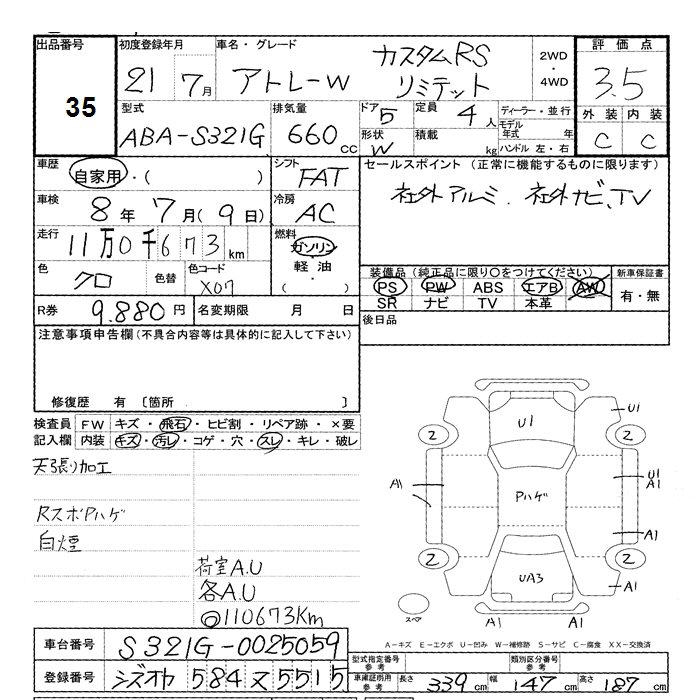 出品番号 初度登録年月 車名・グレード 2WD・4WD 評価点
35 21 7月 アトレーW カスタムRS リミテット 3.5
型式 排気量 ドア 5 定員 4人 ディーラー・並行 外装 内装
ABA-S321G 660cc 形状 W 積載 kg モデル年式 年 ハンドル 左・右 C C
車歴 シフト セールスポイント (正常に機能するものに限ります)
自家用・( ) FAT 社外アルミ.社外ナビ、TV
車検 8年 7月(9日) 冷房 AC
走行 11万0千673km 燃料 ガソリン・軽油・( )
色 クロ 色替 色コード X07
装備品(純正品に限り○をつけてください) 新車保証書
PS PW ABS エアB AW 有・無
SR ナビ TV 本革
R券 9.880円 名変期限 月 日 後日品
注意事項申告欄(不具合内容等は具体的に記入して下さい)
修復歴 有 〔箇所 〕
検査員 FW キズ・飛石・ヒビ割・リペア跡・×要
記入欄 内装 キズ・汚レ・コゲ・穴・スレ・キレ・破レ
天張り加工
RスポPハゲ
白煙
荷室A.U
各A.U
◎110673Km
U1 U1
2 2
A1 Pハゲ U1 A1
A1
2 2
UA3 A1
スペア A1 A1
A-キズ E-エクボ U-凹み W-補修跡 S-サビ C-腐食 XX-交換済
車台番号 S321G-0025059 型式指定番号 参考 類別区分番号 参考
登録番号 シズオカ 584 ス 5515 車庫証明用 参考 長さ 339cm 幅 147cm 高さ 187cm